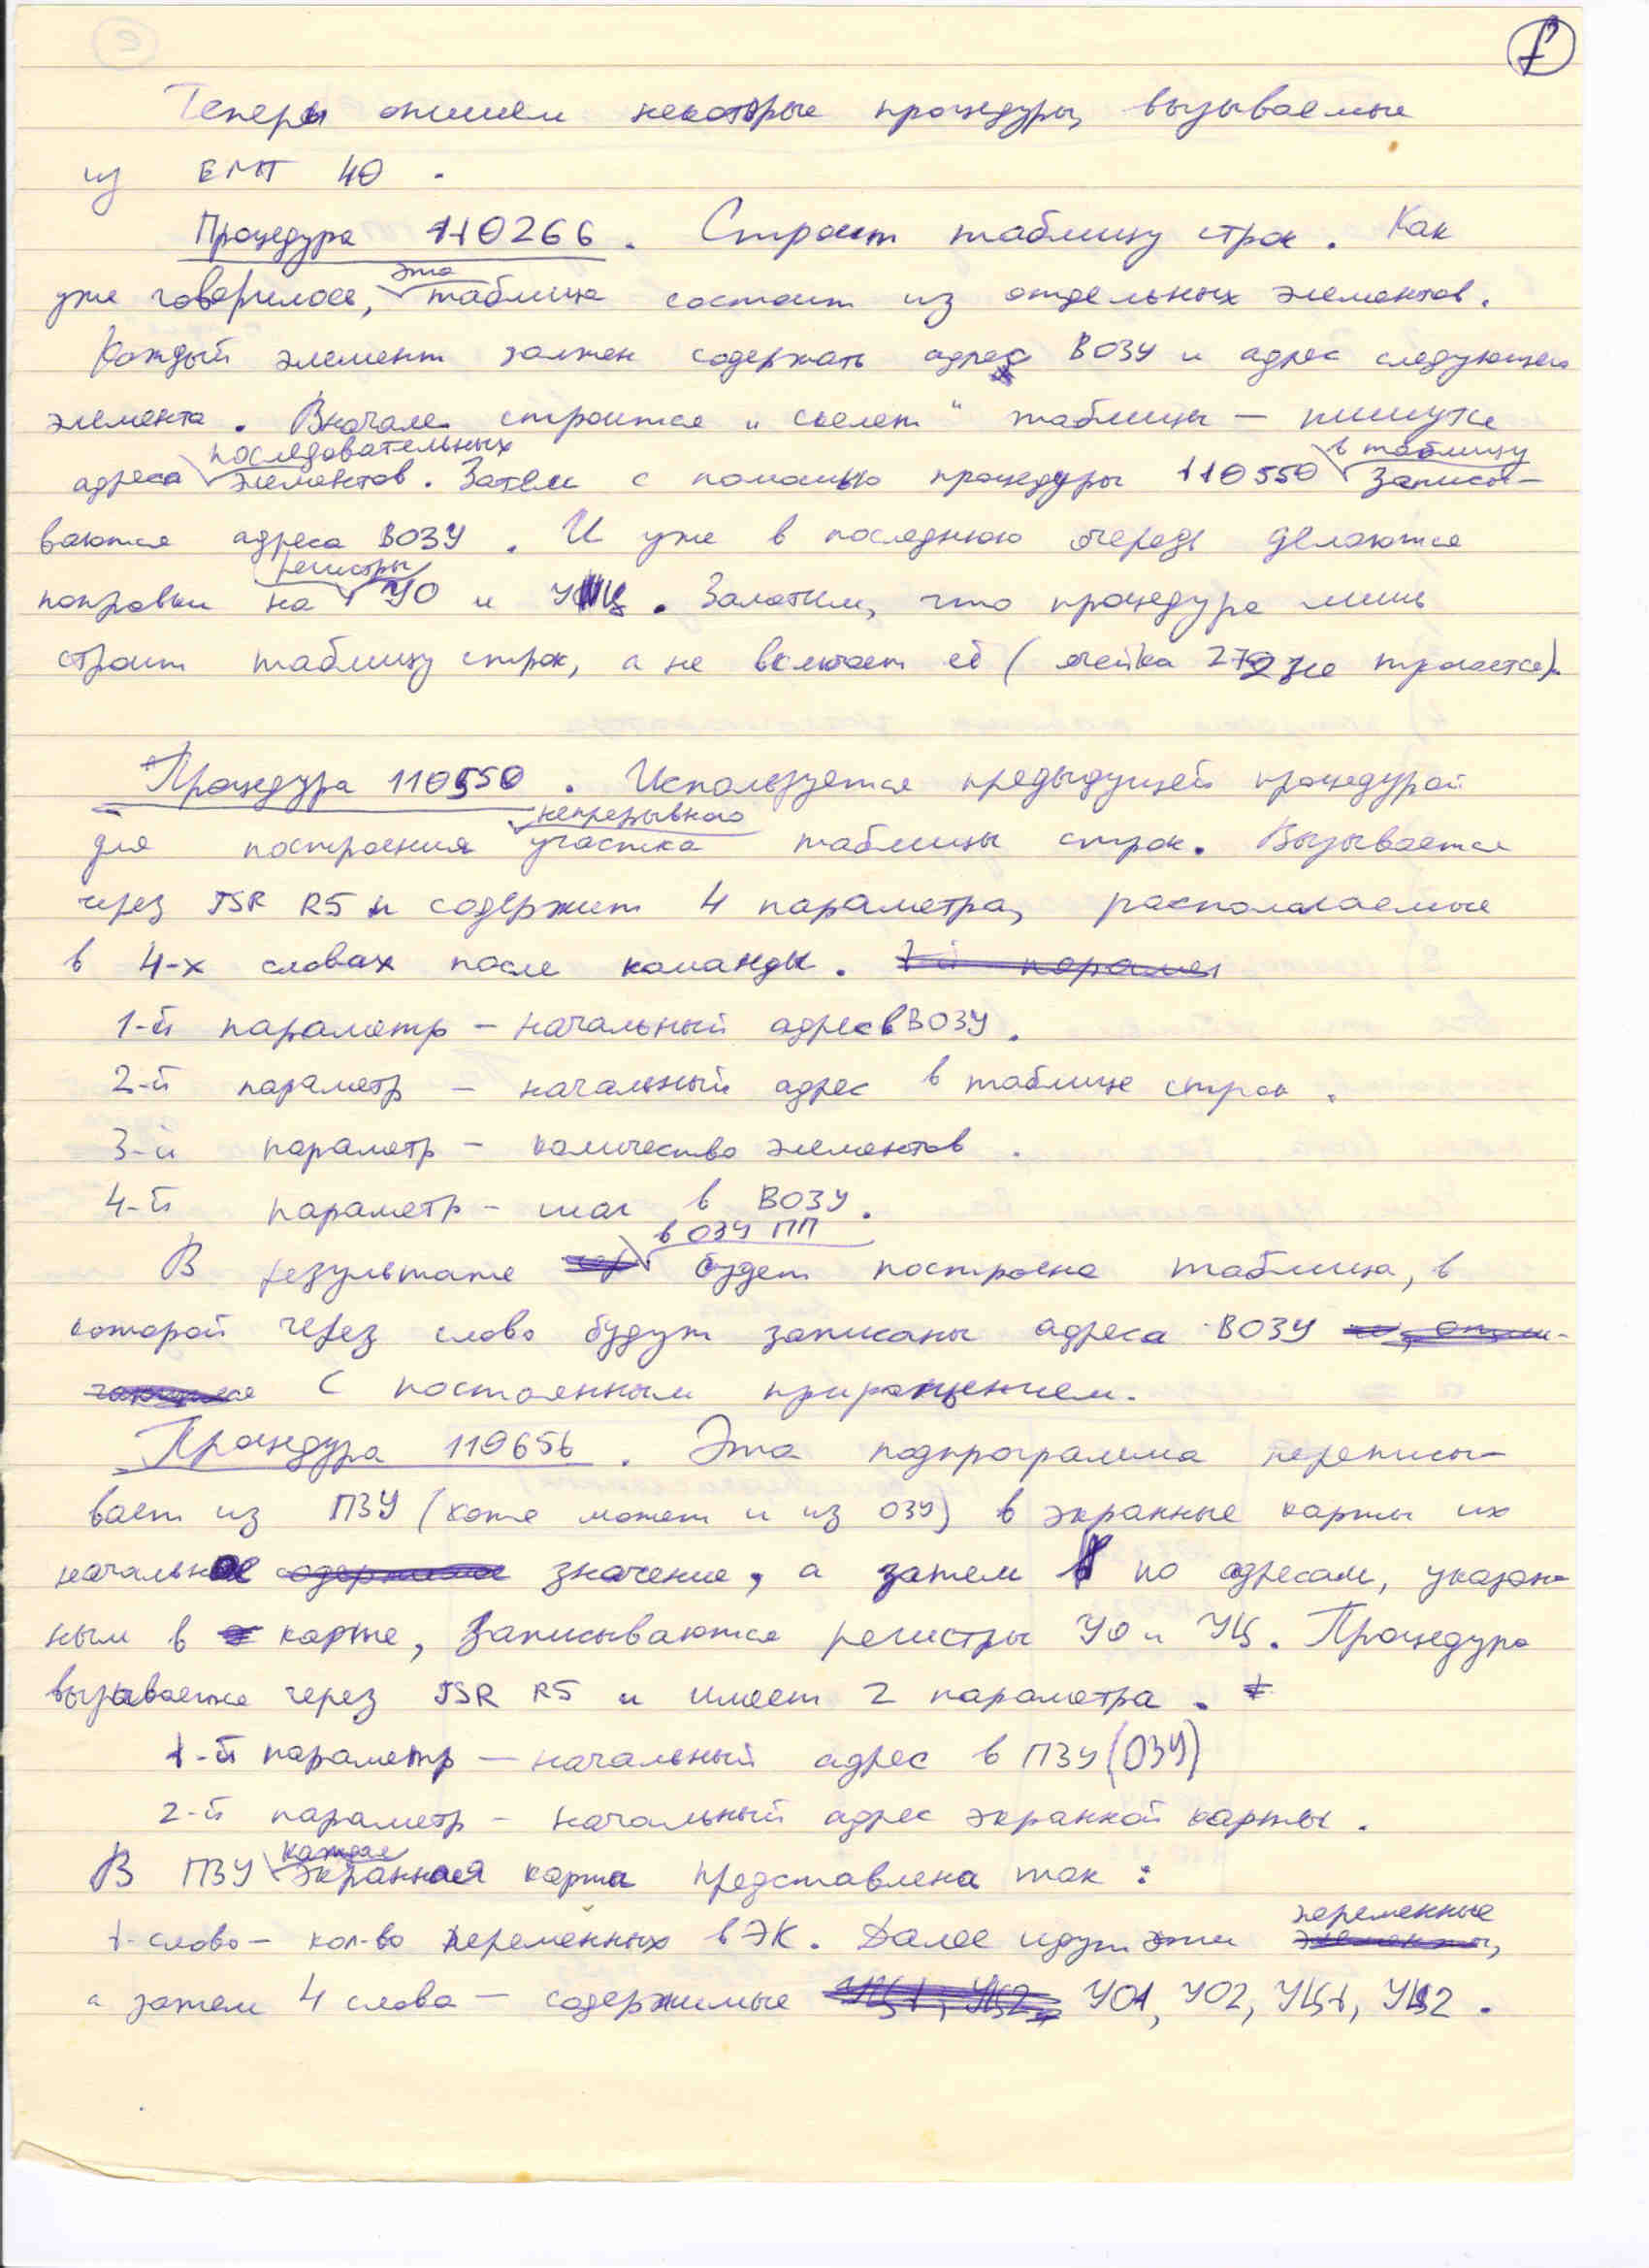 Теперь опишем некоторые процедуры, вызываемые
из EMT 40 .
Процедура 110266 . Строит таблицу строк . Как
уже говорилось, эта таблица состоит из отдельных элементов.
Каждый элемент должен содержать адрес ВОЗУ и адрес следующего
элемента . Вначале строится „ скелет " таблицы — пишутся
адреса последовательных элементов . Затем с помощью процедуры 110550 в таблицу записы-
ваются адреса ВОЗУ . И уже в последнюю очередь делаются
поправки на регистры УО и УЦ . Заметим, что процедура лишь
строит таблицу строк, а не включает её ( ячейка 272 не трогается).
Процедура 110550 . Используется предыдущей процедурой
для построения непрерывного участка таблицы строк . Вызывается
через JSR R5 и содержит 4 параметра, располагаемые
в 4-х словах после команды .
1-й параметр – начальный адрес в ВОЗУ .
2-й параметр – начальный адрес в таблице строк .
3-й параметр – количество элементов .
4-й параметр – шаг в ВОЗУ .
В результате в ОЗУ ПП будет построена таблица, в
которой через слово будут записаны адреса ВОЗУ
с постоянным приращением.
Процедура 110656 . Эта подпрограмма переписы-
вает из ПЗУ (хотя может и из ОЗУ) в экранные карты их
начальное значение, а затем по адресам, указан-
ным в карте, записываются регистры УО и УЦ . Процедура
вызывается через JSR R5 и имеет 2 параметра .
1-й параметр — начальный адрес в ПЗУ (ОЗУ)
2-й параметр – начальный адрес экранной карты .
В ПЗУ каждая экранная карта представлена так :
1-слово – кол-во переменных в ЭК . Далее идут эти переменные,
а затем 4 слова — содержимые УО1, УО2, УЦ1, УЦ2 .